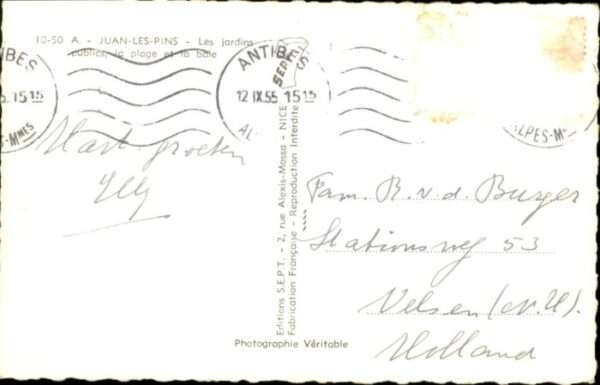 10-50 A. - JUAN-LES-PINS - Les jardins
publics, la plage et la baie
ANTIBES
15 15
ANTIBES
12 IX 55 15 15
AL
ALPES-MMES
Hart. groeten
Elly
Editions S.E.P.T. - 2, rue Alexis-Mossa - NICE
Fabrication Française - Reproduction Interdite
SEPT
Fam. R. v. d. Burger
Stationsweg 53
Velsen (N.H.).
Holland
Photographie Véritable